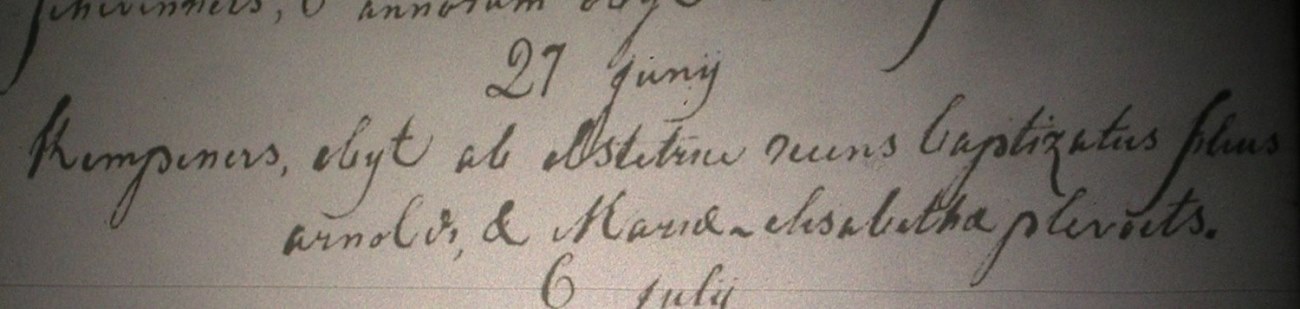 schevinners, 6 annorum obyt
27 junij
Kempeners, obyt ab obstetrice recens baptizatus filius
arnoldi, & Mariæ-elisabethæ plevoets.
6 julij